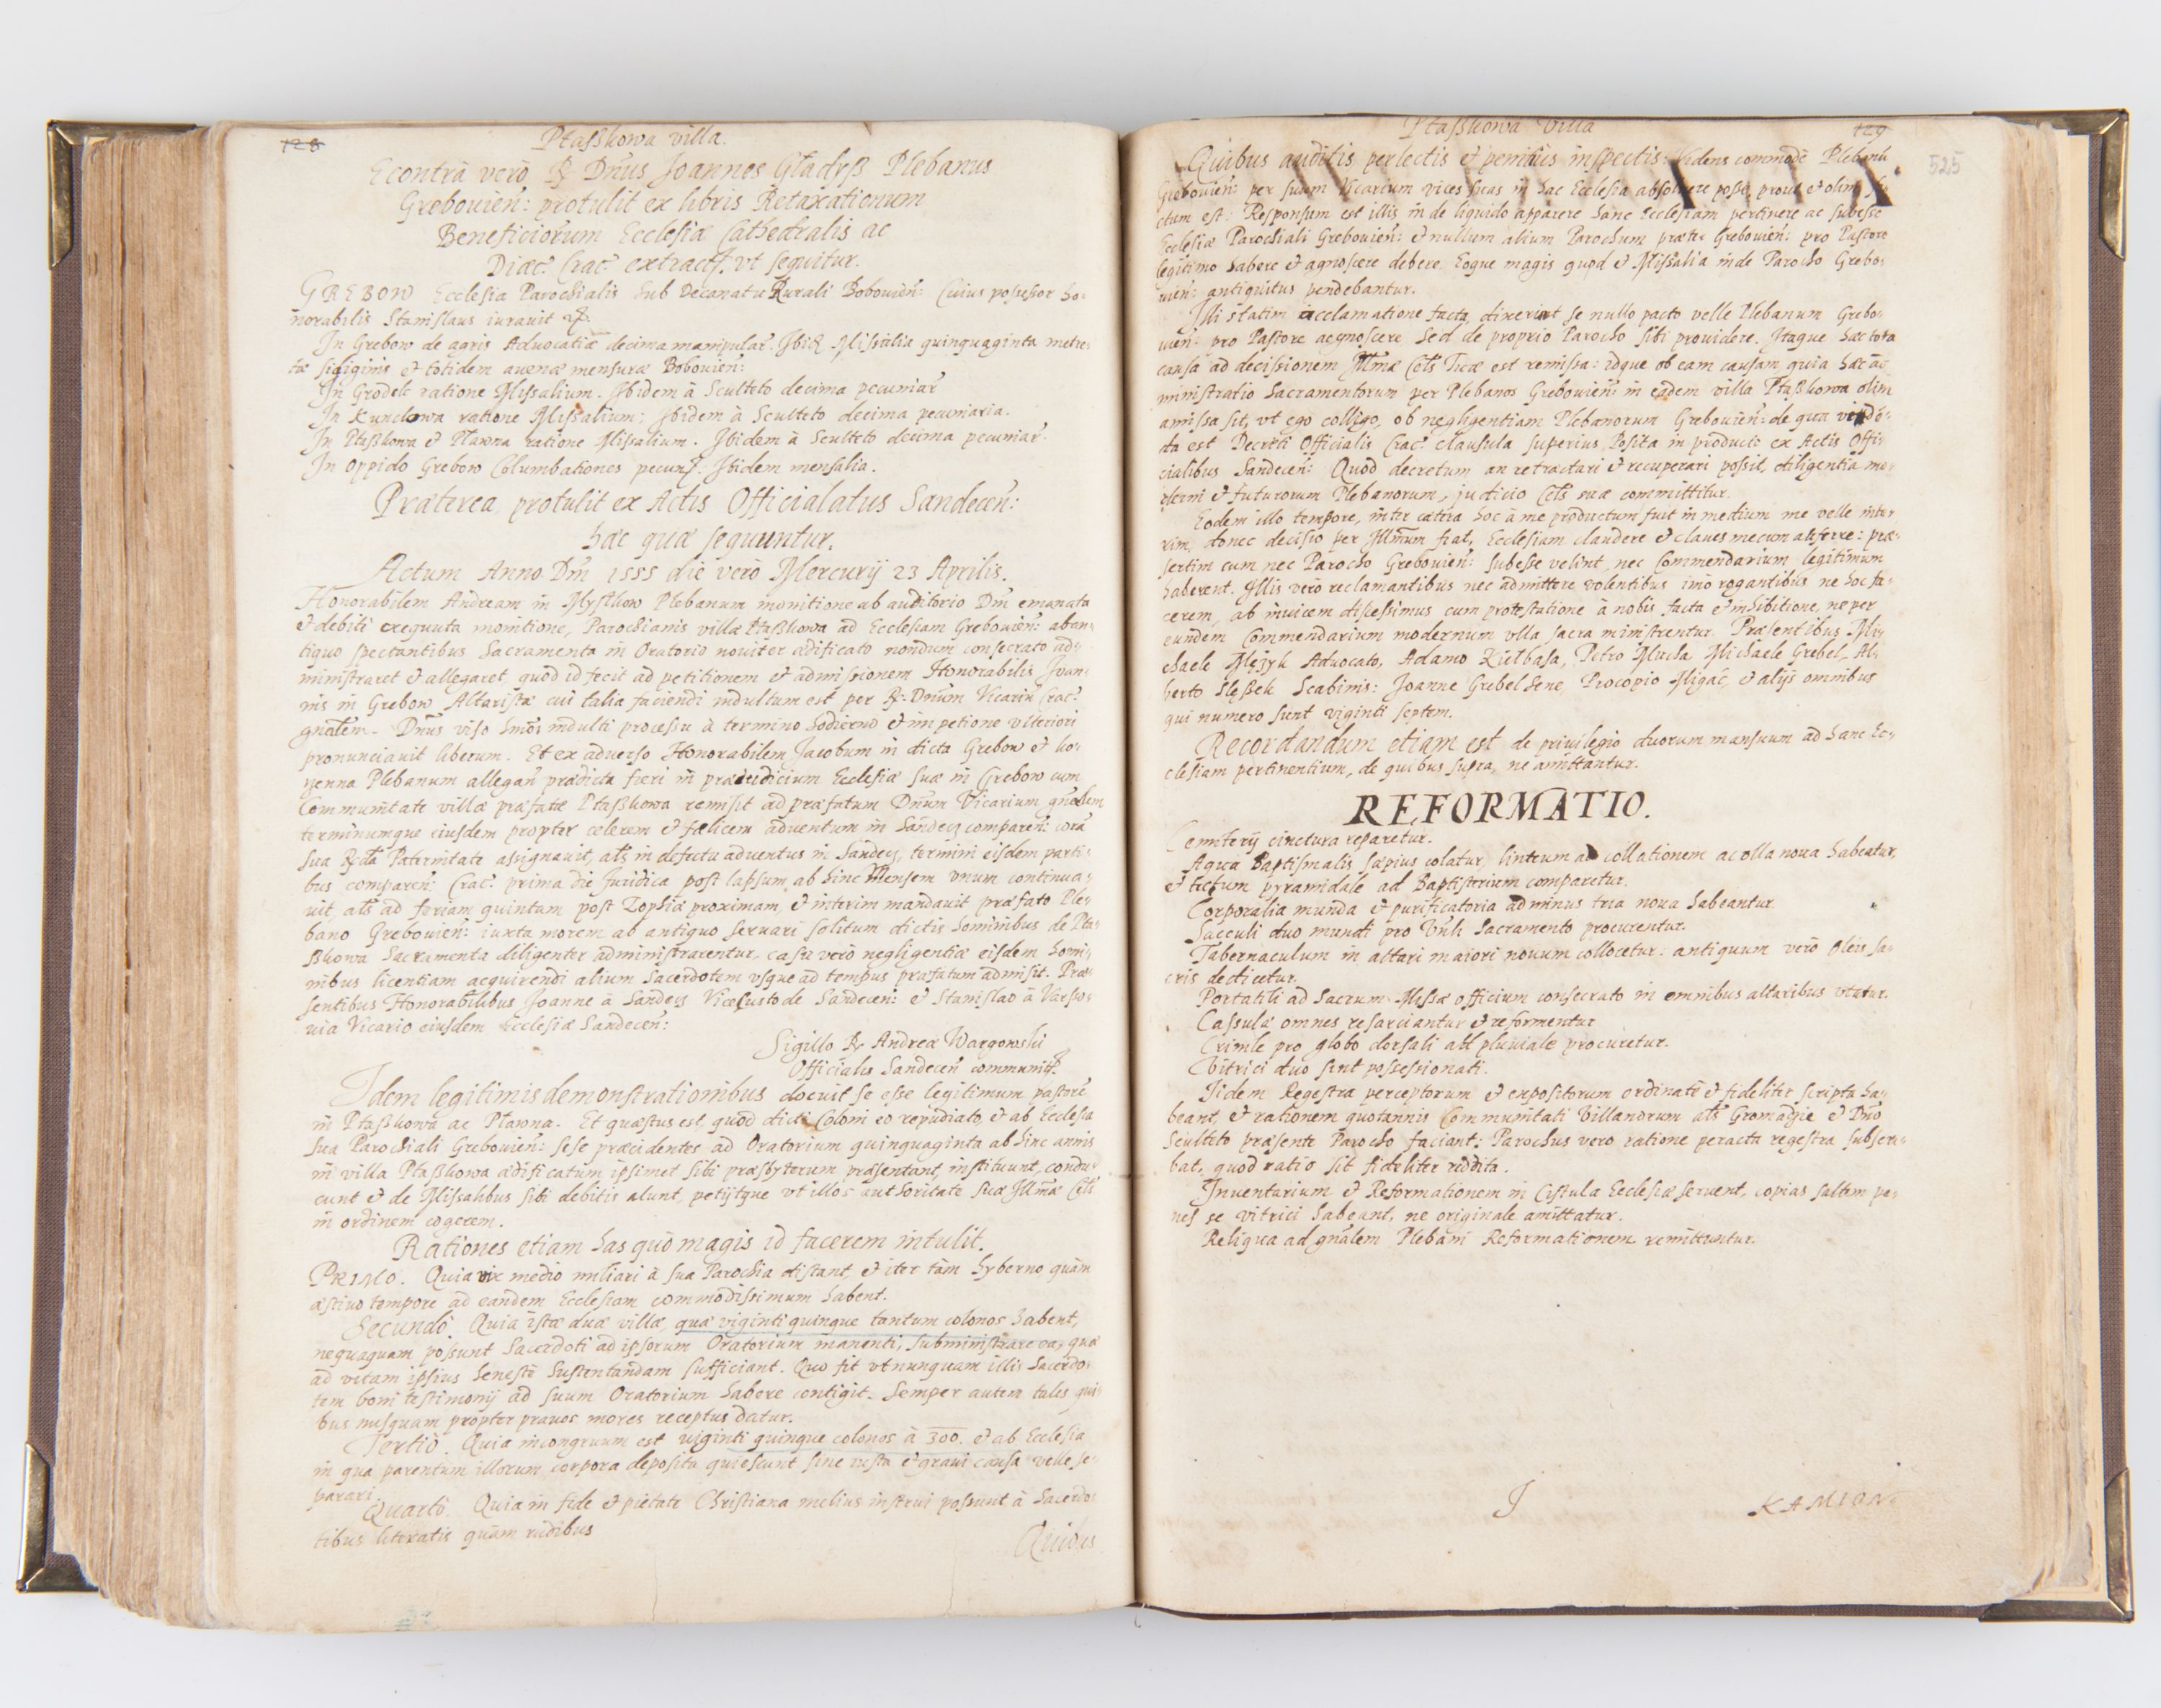 128
Ptaßkowa villa.
Econtrà verò R. Dñus Joannes Gładyß Plebanus
Grebouień: protulit ex libris Retaxationum
Beneficiorum Ecclesiæ Cathedralis ac
Diæc: Crac: extract. vt sequitur.
GREBOW Ecclesia Parochialis sub Decanatu Rurali Bobouień: Cuius possessor ho-
norabilis Stanislaus iurauit
In Grebow de agris Aduocatiæ decima manipular. Ibiđ Missalia quinquaginta metre-
tæ siliginis et totidem auenæ mensuræ Bobouień:
In Grodek ratione Missalium. Ibidem à Sculteto decima pecuniar
In Kunclowa ratione Missalium; Ibidem à Sculteto decima pecuniaria.
In Ptaßkowa et Pławna ratione Missalium. Ibidem à Sculteto decima pecuniar
In Oppido Grebow Columbationes pecun. Ibidem mensalia.
Præterea protulit ex Actis Officialatus Sandeceń:
hæc quæ sequuntur.
Actum Anno Dñi 1555 die verò Mercurij 23 Aprilis.
Honorabilem Andream in Mysthow Plebanum monitione ab auditorio Dñi emanata
et debitè exequuta monitione, Parochianis villæ Ptaßkowa ad Ecclesiam Grebouień: ab an-
tiquo spectantibus Sacramenta in Oratorio nouiter ædificato nondum consecrato ad-
ministraret et allegaret quod id fecit ad petitionem et admissionem Honorabilis Joan-
nis in Grebow Altaristæ cui talia faciendi indultum est per R. Dñum Vicariũ Crac:
gñalem. Dñus viso hmõi indulti processu à termino hodierno et impetione vlteriori
pronunciauit liberum. Et ex aduerso Honorabilem Jacobum in dicta Grebow et ko-
yenna Plebanum allegañ prædicta fieri in præiudicium Ecclesiæ suæ in Grebow cum
Communitate villæ præfatæ Ptaßkowa remisit ad præfatum Dñum Vicarium gñalem
terminumque eiusdem propter celerem et fælicem aduentum in Sandecz compareñ: corã
sua Rda Paternitate assignauit, als in defectu aduentus in Sandecz, termini eisdem parti-
bus compareñ: Crac: prima die Juridica post lapsum ab hinc Mensem vnum continua-
uit, als ad feriam quintam post Zophiæ proximam, et interim mandauit præfato Ple-
bano Grebouień: iuxta morem ab antiquo seruari solitum dictis hominibus de Pta-
ßkowa Sacramenta diligenter administrarentur, casu verò negligentiæ eisdem homi-
nibus licentiam acquirendi alium Sacerdotem vsque ad tempus præfatum admisit. Præ-
sentibus Honorabilibus Joanne à Sandecz ViceCustode Sandeceń: et Stanislao à Varso-
uia Vicario eiusdem Ecclesiæ Sandeceń:
Sigillo R. Andreæ Wargowski
Officialis Sandeceń communit.
Idem legitimis demonstrationibus docuit se esse legitimum pastorẽ
in Ptaßkowa ac Pławna. Et quæstus est quòd dicti Coloni eo repudiato, et ab Ecclesia
sua Parochiali Grebouień: sese præcidentes ad Oratorium quinquaginta ab hinc annis
in villa Ptaßkowa ædificatum ipsimet sibi præsbyterum præsentant, instituunt, condu-
cunt et de Missalibus sibi debitis alunt, petijtque vt illos authoritate suæ Jllmæ Cels
in ordinem cogerem.
Rationes etiam has quò magis id facerem intulit.
PRIMO. Quia vix medio milliari à sua Parochia distant, et iter tàm hyberno quàm
æstiuo tempore ad eandem Ecclesiam commodissimum habent.
Secundò. Quia istæ duæ villæ, quæ viginti quinque tantum colonos habent,
nequaquam possunt Sacerdoti ad ipsorum Oratorium manenti, subministrare ea, quæ
ad vitam ipsius honestè sustentandam sufficiant. Quo fit vt nunquam illis Sacerdo-
tem boni testimonij ad suum Oratorium habere contigit. Semper autem tales qui-
bus nusquam propter prauos mores receptus datur.
Tertiò. Quia incongruum est viginti quinque colonos à 300. et ab Ecclesia
in qua parentum illorum corpora deposita quiescunt sine iusta et graui causa velle se-
parari.
Quartò. Quia in fide et pietate Christiana melius instrui possunt à Sacerdo-
tibus literatis quàm rudibus
Quibus
Ptaßkowa villa
129
525
Quibus auditis perlectis et penitùs inspectis: Videns commodè Plebanũ
Grebouień: per suum Vicarium vices suas in hac Ecclesia absoluere posse, prout et olim fa-
ctum est: Responsum est illis inde liquido apparere hanc Ecclesiam pertinere ac subesse
Ecclesiæ Parochiali Grebouień: et nullum alium Parochum præter Grebouień: pro Pastore
legitimo habere et agnoscere debere. Eoque magis quod et Missalia inde Parocho Grebo-
uień: antiquitus pendebantur.
Illi statim acclamatione facta, dixerunt se nullo pacto velle Plebanum Grebo-
uień: pro Pastore agnoscere sed de proprio Parocho sibi prouidere. Itaque hæc tota
causa ad decisionem Jllmæ Cels Tuæ est remissa: idque ob eam causam, quia hæc ad-
ministratio Sacramentorum per Plebanos Grebouień: in eadem villa Ptaßkowa olim
amissa sit, vt ego colligo, ob negligentiam Plebanorum Grebouień: de qua viden-
da est Decreti Officialis Crac: clausula superius Posita in producto ex Actis Offi-
cialibus Sandeceń: Quod decretum an retractari et recuperari possit, diligentia mo-
derni et futurorum Plebanorum, judicio Cels suæ committitur.
Eodem illo tempore, inter cætera hoc à me productum fuit in medium me velle inter
rim, donec decisio per Jllmum fiat, Ecclesiam claudere et claues mecum auferre: præ-
sertim cum nec Parocho Grebouień: subesse velint, nec Commendarium legitimum
haberent. Illis verò reclamantibus nec admittere volentibus imò rogantibus ne hoc fa-
cerem, ab inuicem discessimus cum protestatione à nobis facta et inhibitione, ne per
eundem Commendarium modernum vlla sacra ministrentur. Præsentibus Mi-
chaele Mężyk Aduocato, Adamo Kiełbasa, Petro Mucha, Michaele Grebel, Al-
berto Slęßek Scabinis: Joanne Grebel Sene, Procopio Migacz et alijs omnibus
qui numero sunt viginti septem.
Recordandum etiam est de priuilegio duorum mansuum ad hanc Ec-
clesiam pertinentium, de quibus supra, ne amittantur.
REFORMATIO.
Cemiterij cinctura reparetur.
Aqua Baptismalis sæpius colatur, linteum ad collationem ac olla noua habeatur,
et tectum pyramidale ad Baptisterium comparetur.
Corporalia munda et purificatoria ad minus tria noua habeantur.
Sacculi duo mundi pro Vnli Sacramento procurentur.
Tabernaculum in altari maiori nouum collocetur: antiquum verò Oleis sa-
cris dedicetur.
Portatili ad Sacrum Missæ officium consecrato in omnibus altaribus vtatur.
Casulæ omnes resarciantur et reformentur
Crinile pro globo dorsali ad pluuiale procuretur.
Vitrici duo sint possessionati.
Iidem Regestra perceptorum et expositorum ordinatè et fideliter scripta ha-
beant, et rationem quotannis Communitati Villanorum als Gromadzie et Dño
Sculteto præsente Parocho faciant: Parochus vero ratione peracta regestra subscri-
bat, quod ratio sit fideliter reddita.
Inuentarium et Reformationem in Cistula Ecclesiæ seruent, copias saltem pe-
nes se vitrici habeant, ne originale amittatur.
Reliqua ad gñalem Plebani Reformationem remittuntur.
J
KAMION